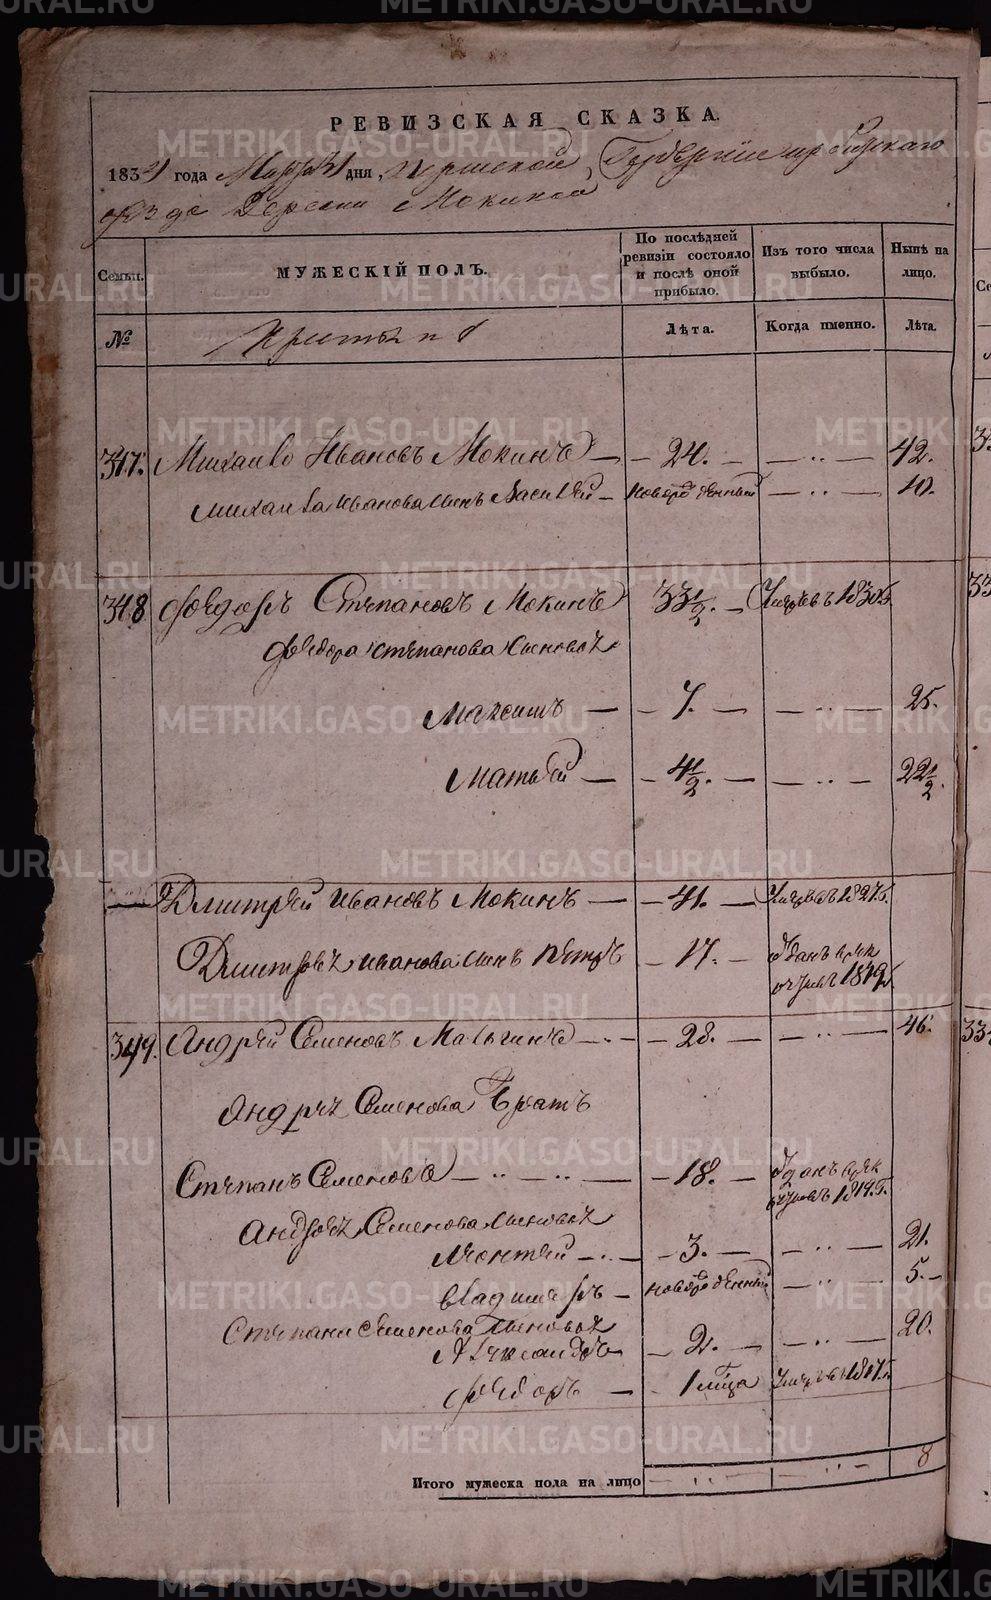 РЕВИЗСКАЯ СКАЗКА.
1834 года Марта дня, Пермской Губернии Ирбитскаго
уезда Деревни Мокиной
Семьи.
МУЖЕСКІЙ ПОЛЪ.
По послѣдней ревизіи состояло и послѣ оной прибыло.
Изъ того числа выбыло.
Нынѣ на лицо.
№
Лѣта.
Когда именно.
Лѣта.
347. Михайло Ивановъ Мокинъ — 24. — 42.
Михайла Иванова сынъ Василей — новорожденный — 10.
348 Федоръ Степановъ Мокинъ 33 1/2. — Умръ въ 1830 г.
Федора Степанова сыновья
Максимъ — 7. — 25.
Матвей — 4 1/2. — 22 1/2.
Дмитрей Ивановъ Мокинъ — 41. — Умръ въ 1827 г.
Дмитрея Иванова сынъ Петръ — 17. — Отданъ в рек
руты 1819
349. Андрей Семеновъ Мальгинъ — 28. — 46.
Андрея Семенова Братъ
Степанъ Семеновъ — 18. — Отданъ в рек
руты 1819. г.
Андрея Семенова сыновья
Леонтей — 3. — 21.
Владимеръ — новорожденный — 5. —
Степана Семенова сыновья
Александръ — 2. — 20.
Федоръ — 1 мца Умръ въ 1817 г.
Итого мужеска пола на лицо 8
METRIKI.GASO-URAL.RU